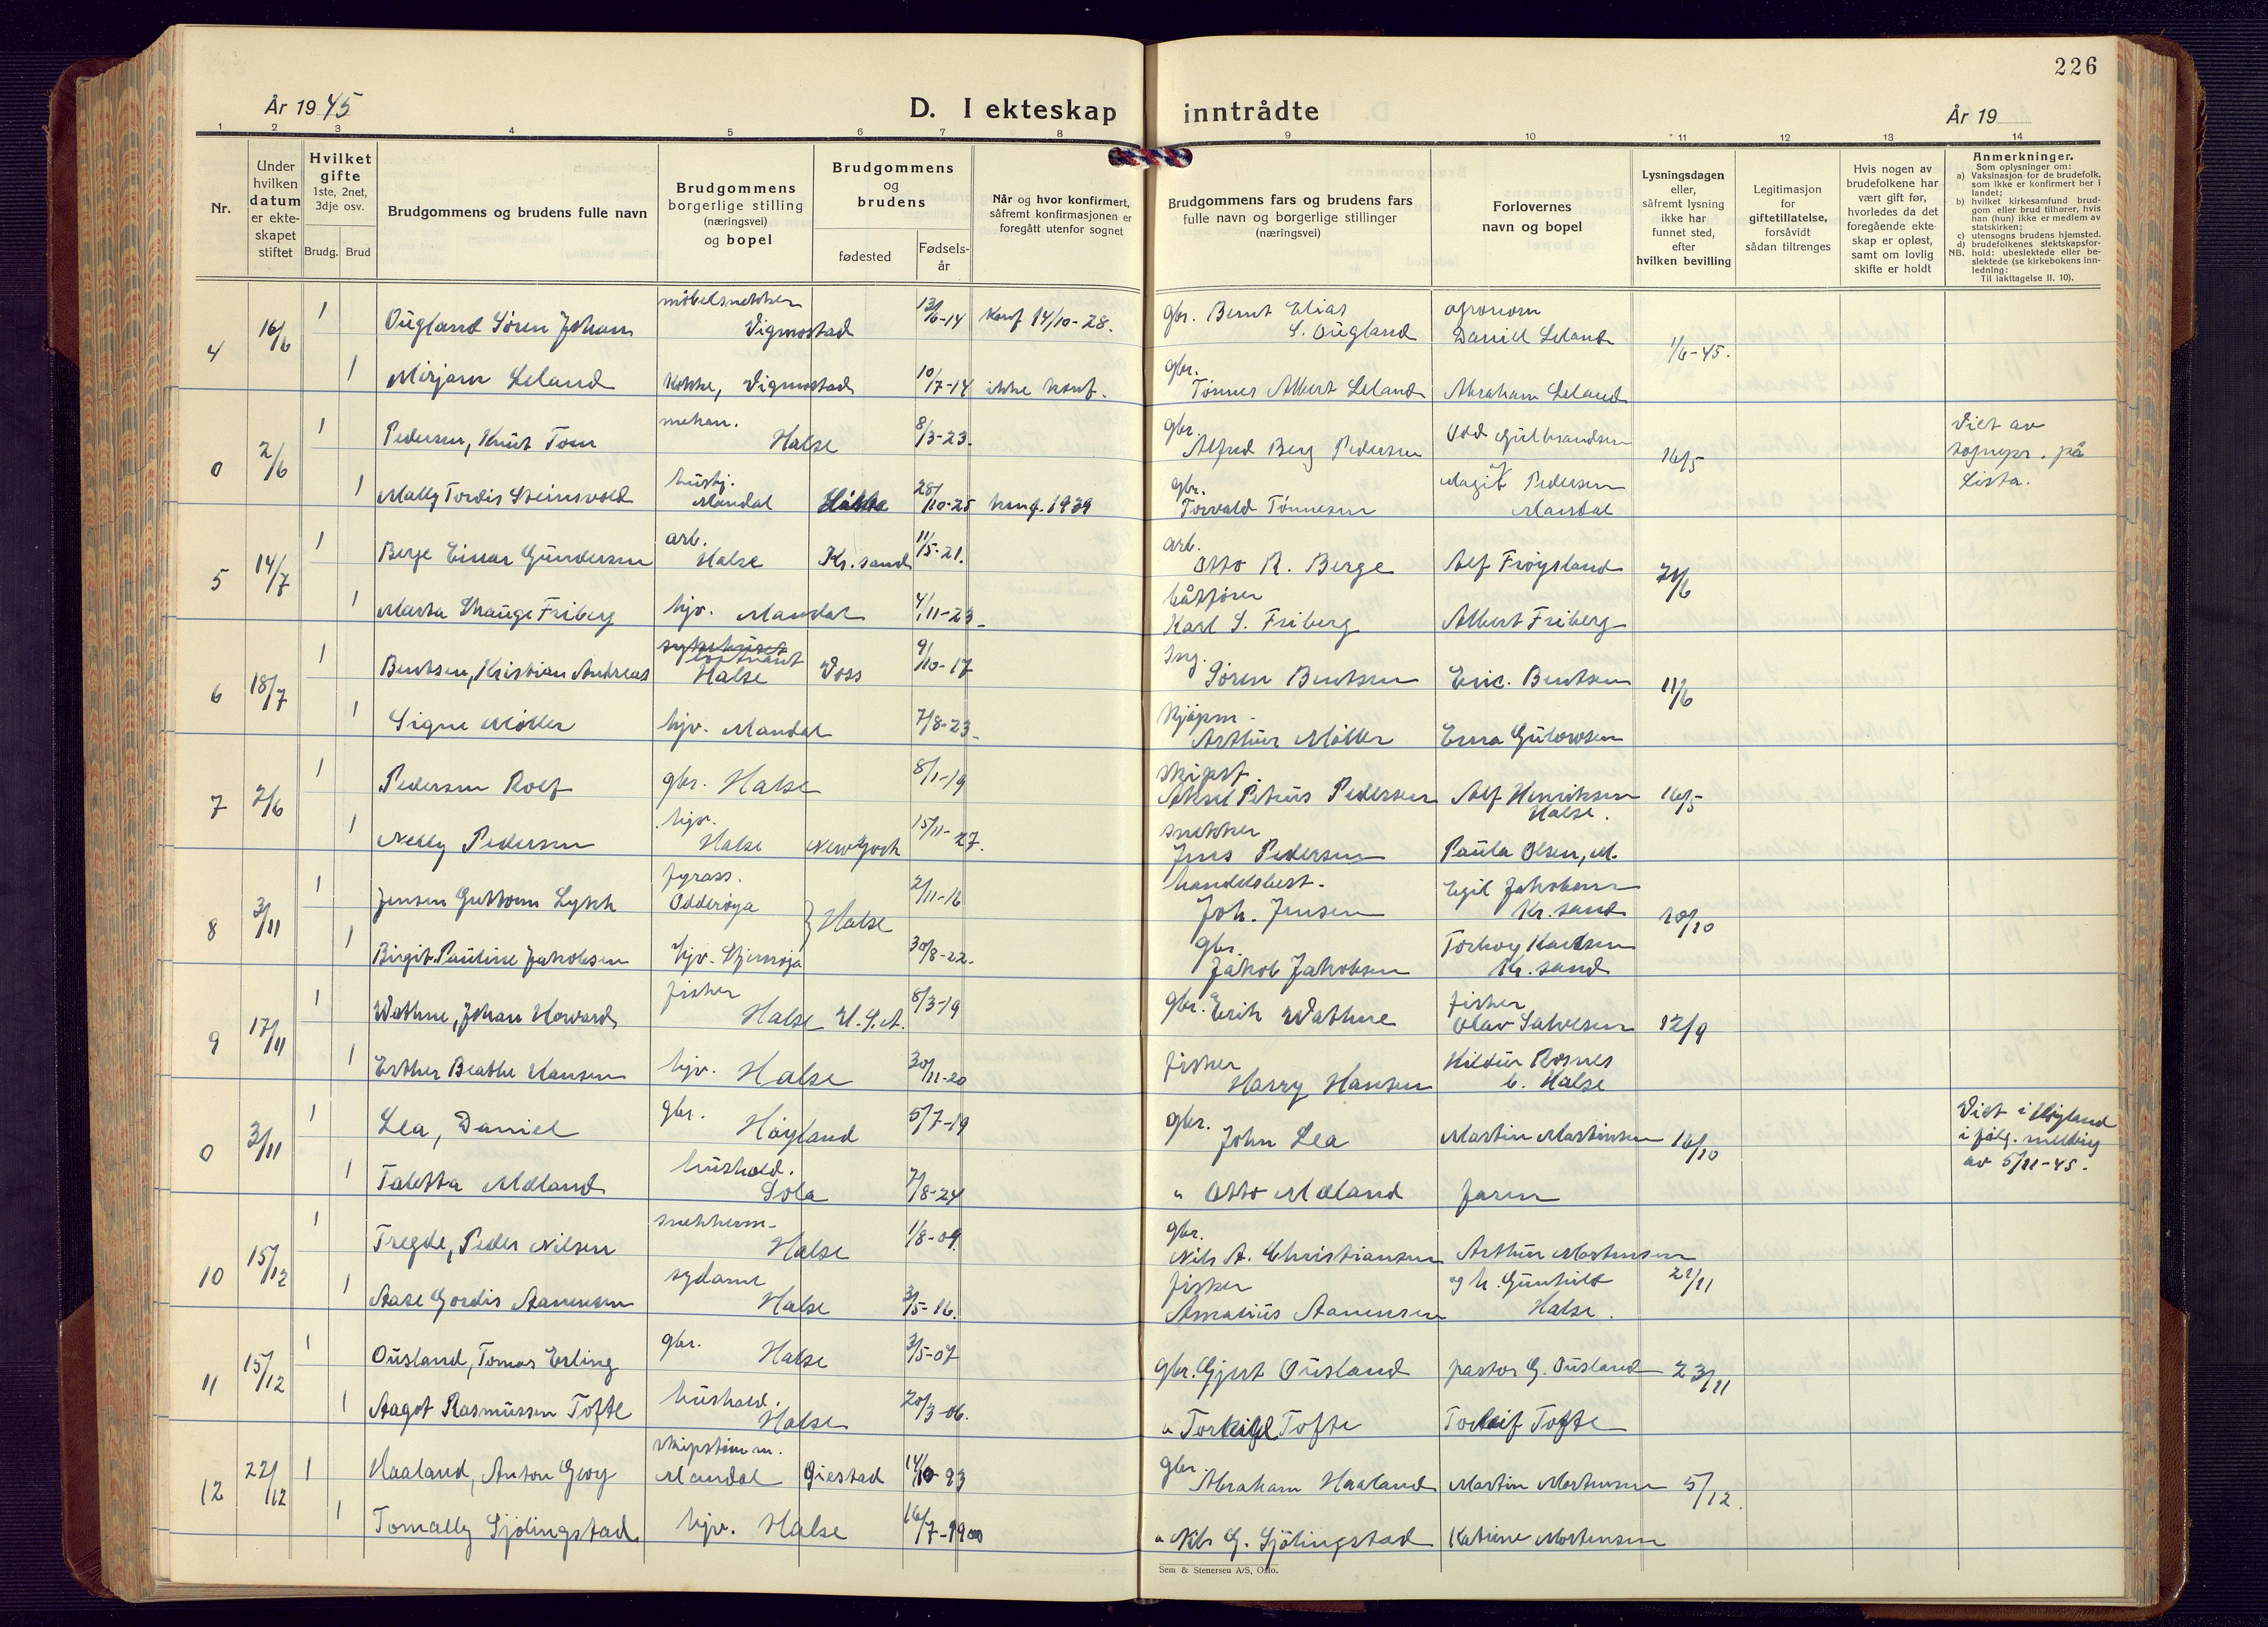 226
År 1945
D. I ekteskap inntrådte
År 19
1 2 3 4 5 6 7 8 9 10 11 12 13 14
Nr.
Under hvilken datum er ekteskapet stiftet
Hvilket gifte
1ste, 2net, 3dje osv.
Brudg. Brud
Brudgommens og brudens fulle navn
Brudgommens borgerlige stilling (næringsvei) og bopel
Brudgommens og brudens
fødested
Fødselsår
Når og hvor konfirmert, såfremt konfirmasjonen er foregått utenfor sognet
Brudgommens fars og brudens fars fulle navn og borgerlige stillinger (næringsvei)
Forlovernes navn og bopel
Lysningsdagen eller, såfremt lysning ikke har funnet sted, efter hvilken bevilling
Legitimasjon for giftetillatelse, forsåvidt sådan tiltrenges
Hvis nogen av brudefolkene har vært gift før, hvorledes da det foregående ekteskap er opløst, samt om lovlig skifte er holdt
Anmerkninger.
Som oplysninger om:
a) Vaksinasjon for de brudefolk, som ikke er konfirmert her i landet;
b) hvilket kirkesamfund brudgom eller brud tilhører, hvis han (hun) ikke er medlem av statskirken;
c) utensogns brudens hjemsted.
d) brudefolkenes slektskapsforhold: ubeslektede eller beslektede (se kirkebokens innledning:
NB. Til iakttagelse II, 10).
4 16/6 1 Øugland Søren Johan møbelsnekker Vigmostad 13/6-14 Konf 14/10-28. gbr. Bernt Elias S. Øugland agronom Daniel Leland 1/6-45.
1 Mirjam Leland Kokke, Vigmostad 10/7-14 ikke konf. gbr. Tønnes Albert Leland Abraham Leland
0 2/6 1 Pedersen, Knut Tom mekan. Halse 8/3-23. gbr. Alfred Berg Pedersen Odd Gulbrandsen 16/5 Viet av sognepr. på Lista.
1 Mally Tordis Steinsvold husbj. Mandal 28/10-25 konf. 1939 gbr. Torvald Tønnesen Magit Pedersen Mandal
5 14/7 1 Berge Einar Gundersen arb. Halse Kr. sand 11/5-21. arb. Otto R. Berge Alf Frøysland 21/6
1 Marta Skauge Friberg hjv. Mandal 4/11-23 båtfører Karl S. Friberg Albert Friberg
6 18/7 1 Bentsen, Kristian Andreas løitnant Halse Voss 9/10-17 Ing. Søren Bentsen Eric. Bentsen 11/6
1 Signe Møller hjv. Mandal 7/8-23 Kjøpm. Arthur Møller Erna Gulowsen
7 2/6 1 Pedersen Rolf gbr. Halse 8/1-19 skipsf. Aksel Petrus Pedersen Alf Henriksen Halse. 16/5
1 Nelly Pedersen hjv. Halse New York 15/11-27. snekker Jens Pedersen Paula Olsen, M.
8 3/11 1 Jensen Guttorm Lykk fyrass. Odderøya } Halse 2/11-16 handelsbest. Joh. Jensen Egil Jakobsen Kr. sand 20/10
1 Birgit Pauline Jakobsen hjv. Skjernøja 30/8-22. gbr. Jakob Jakobsen Torborg Karlsen Kr. sand
9 17/11 1 Wathne, Johan Howard fisker Halse U.S.A. 8/3-19 gbr. Erik Wathne fisker Olav Salvesen 12/9
1 Esther Beathe Hansen hjv. Halse 30/11-20 fisker Harry Hansen Hildur Rosnes b. Halse
0 3/11 1 Lea, Daniel gbr. Høyland 5/7-19 gbr. John Lea Martin Martinsen 16/10 Viet i Høyland i følg. melding av 5/11-45.
1 Taletta Mæland hushold. Sola 7/8-24 " Otto Mæland Jaren
10 15/12 1 Tregde, Peder Nilsen snekkerm. Halse 1/8-09. gbr. Nils A. Christiansen Arthur Mortensen 21/11
1 Aase Gordis Aanensen sydame Halse 3/5-16. fisker Amalius Aanensen og h. Gunhild Halse.
11 15/12 1 Øusland, Tomas Erling gbr. Halse 3/5-07 gbr. Gjert Øusland pastor G. Øusland 23/11
1 Aagot Rasmussen Tofte hushold. Halse 20/3-06. " Torkild Tofte Torleif Tofte
12 22/12 1 Haaland, Anton Georg skipstimm. Mandal Giestad 14/10-93 gbr. Abraham Haaland Martin Mortensen 5/12.
1 Tomally Sjølingstad hjv. Halse 16/7-1900 " Nils G. Sjølingstad Katrine Mortensen
Sem & Stenersen A/S, Oslo.